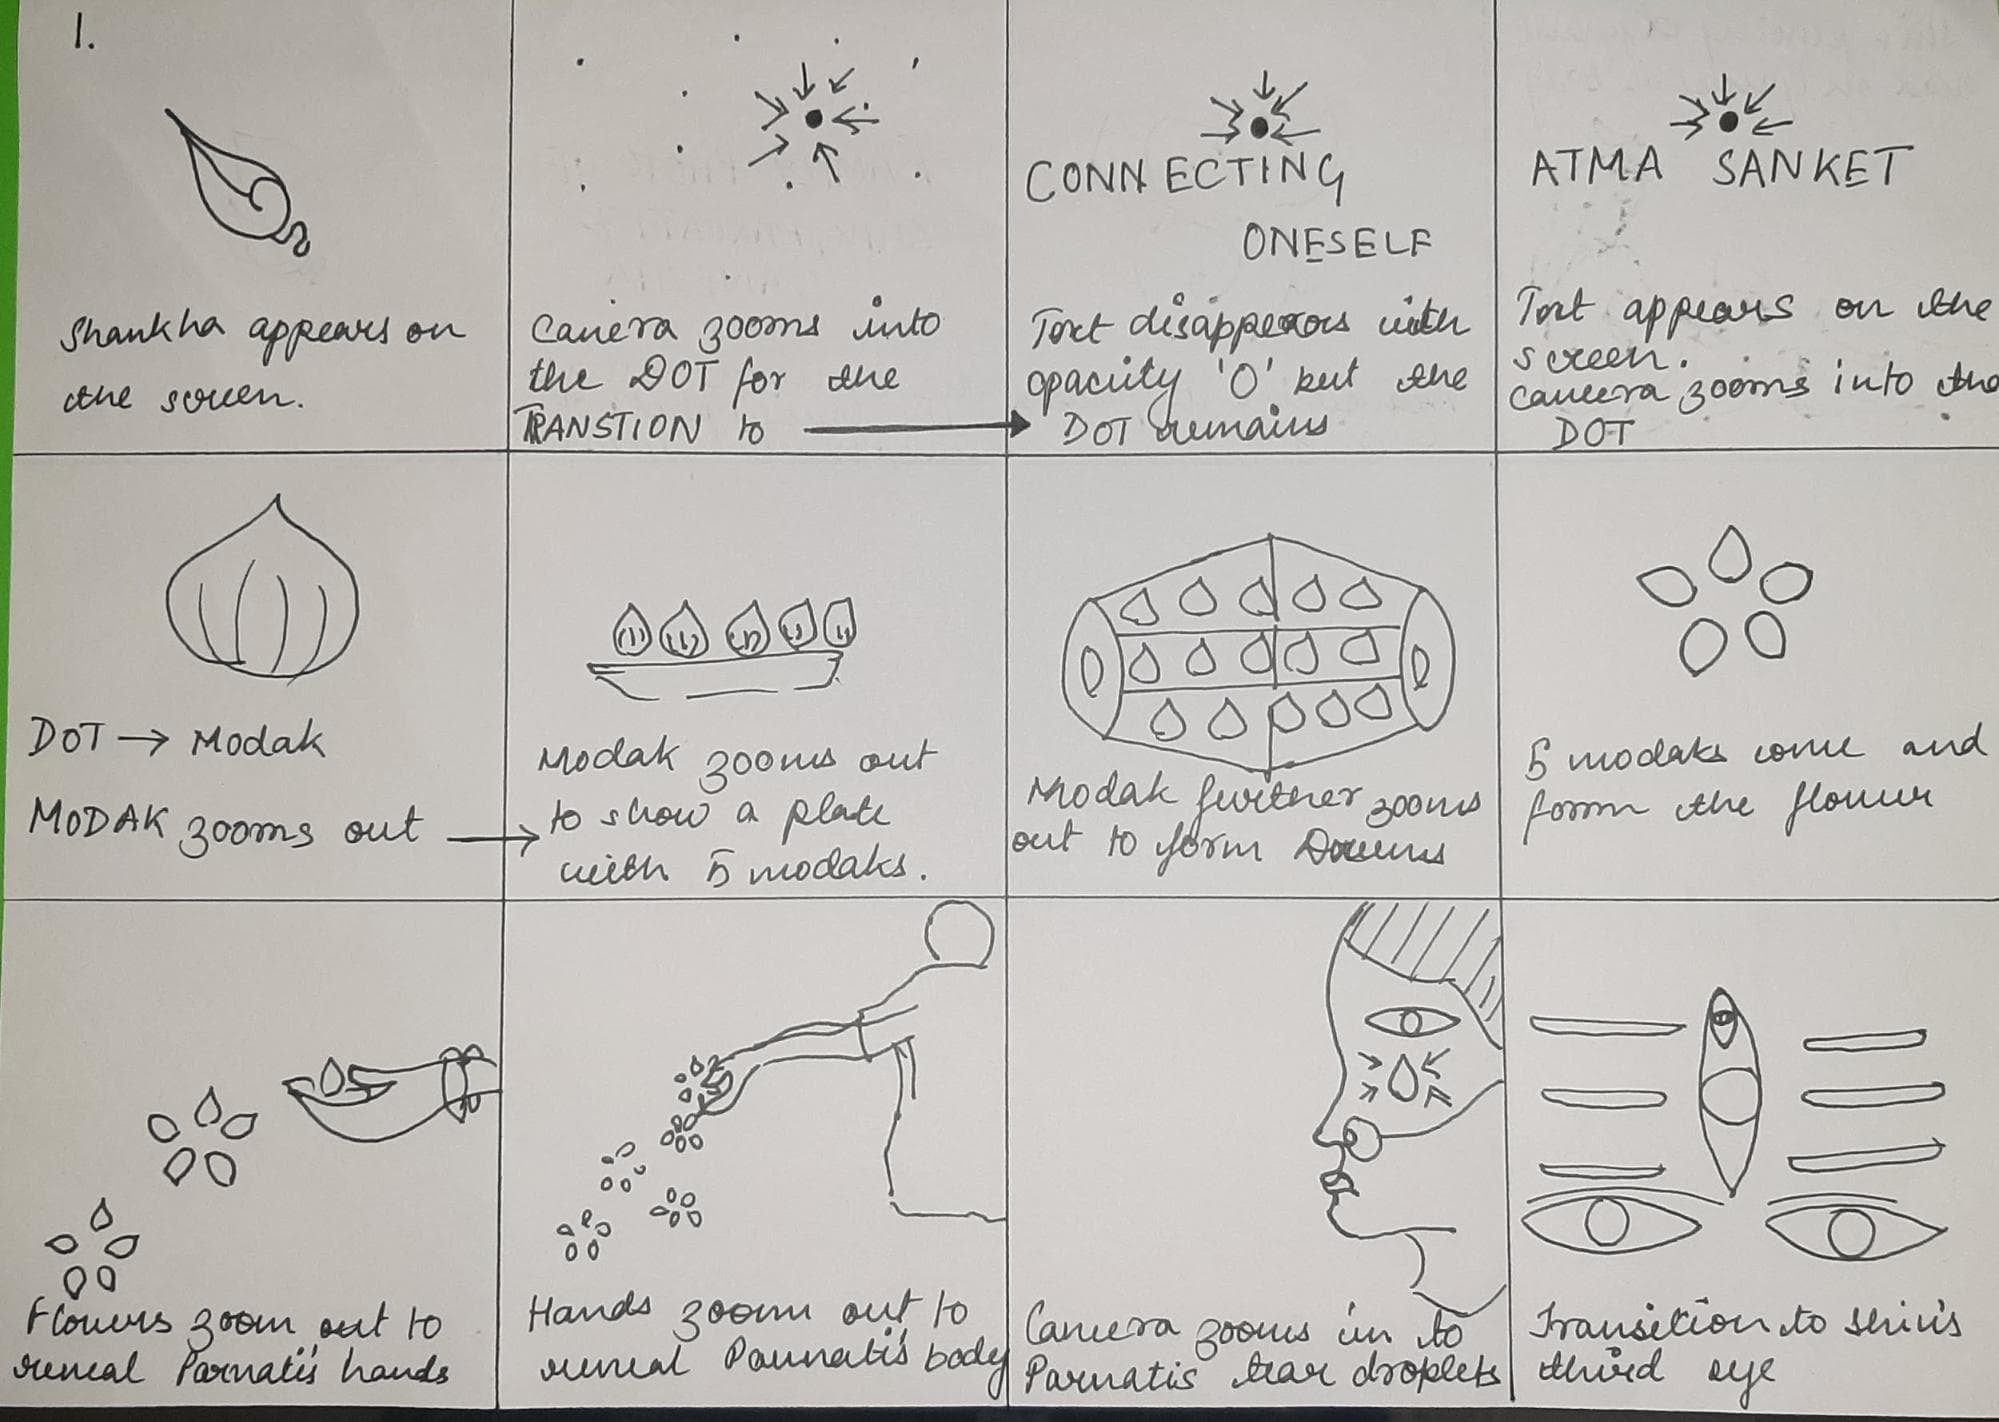 1.
Shankha appears on
the screen.
Camera zooms into
the DOT for the
TRANSTION to
CONNECTING
ONESELF
Text disappears with
opacity 'O' but the
DOT remains
ATMA SANKET
Text appears on the
screen.
camera zooms into the
DOT
DOT → Modak
MODAK zooms out →
Modak zooms out
to show a plate
with 5 modaks.
Modak further zooms
out to form
5 modaks come and
form the flower
Flowers zoom out to
reveal Parvati's hands
Hands zoom out to
reveal Parvati's body
Camera zooms in to
Parvatis tear droplets
Transition to Shiv's
third eye